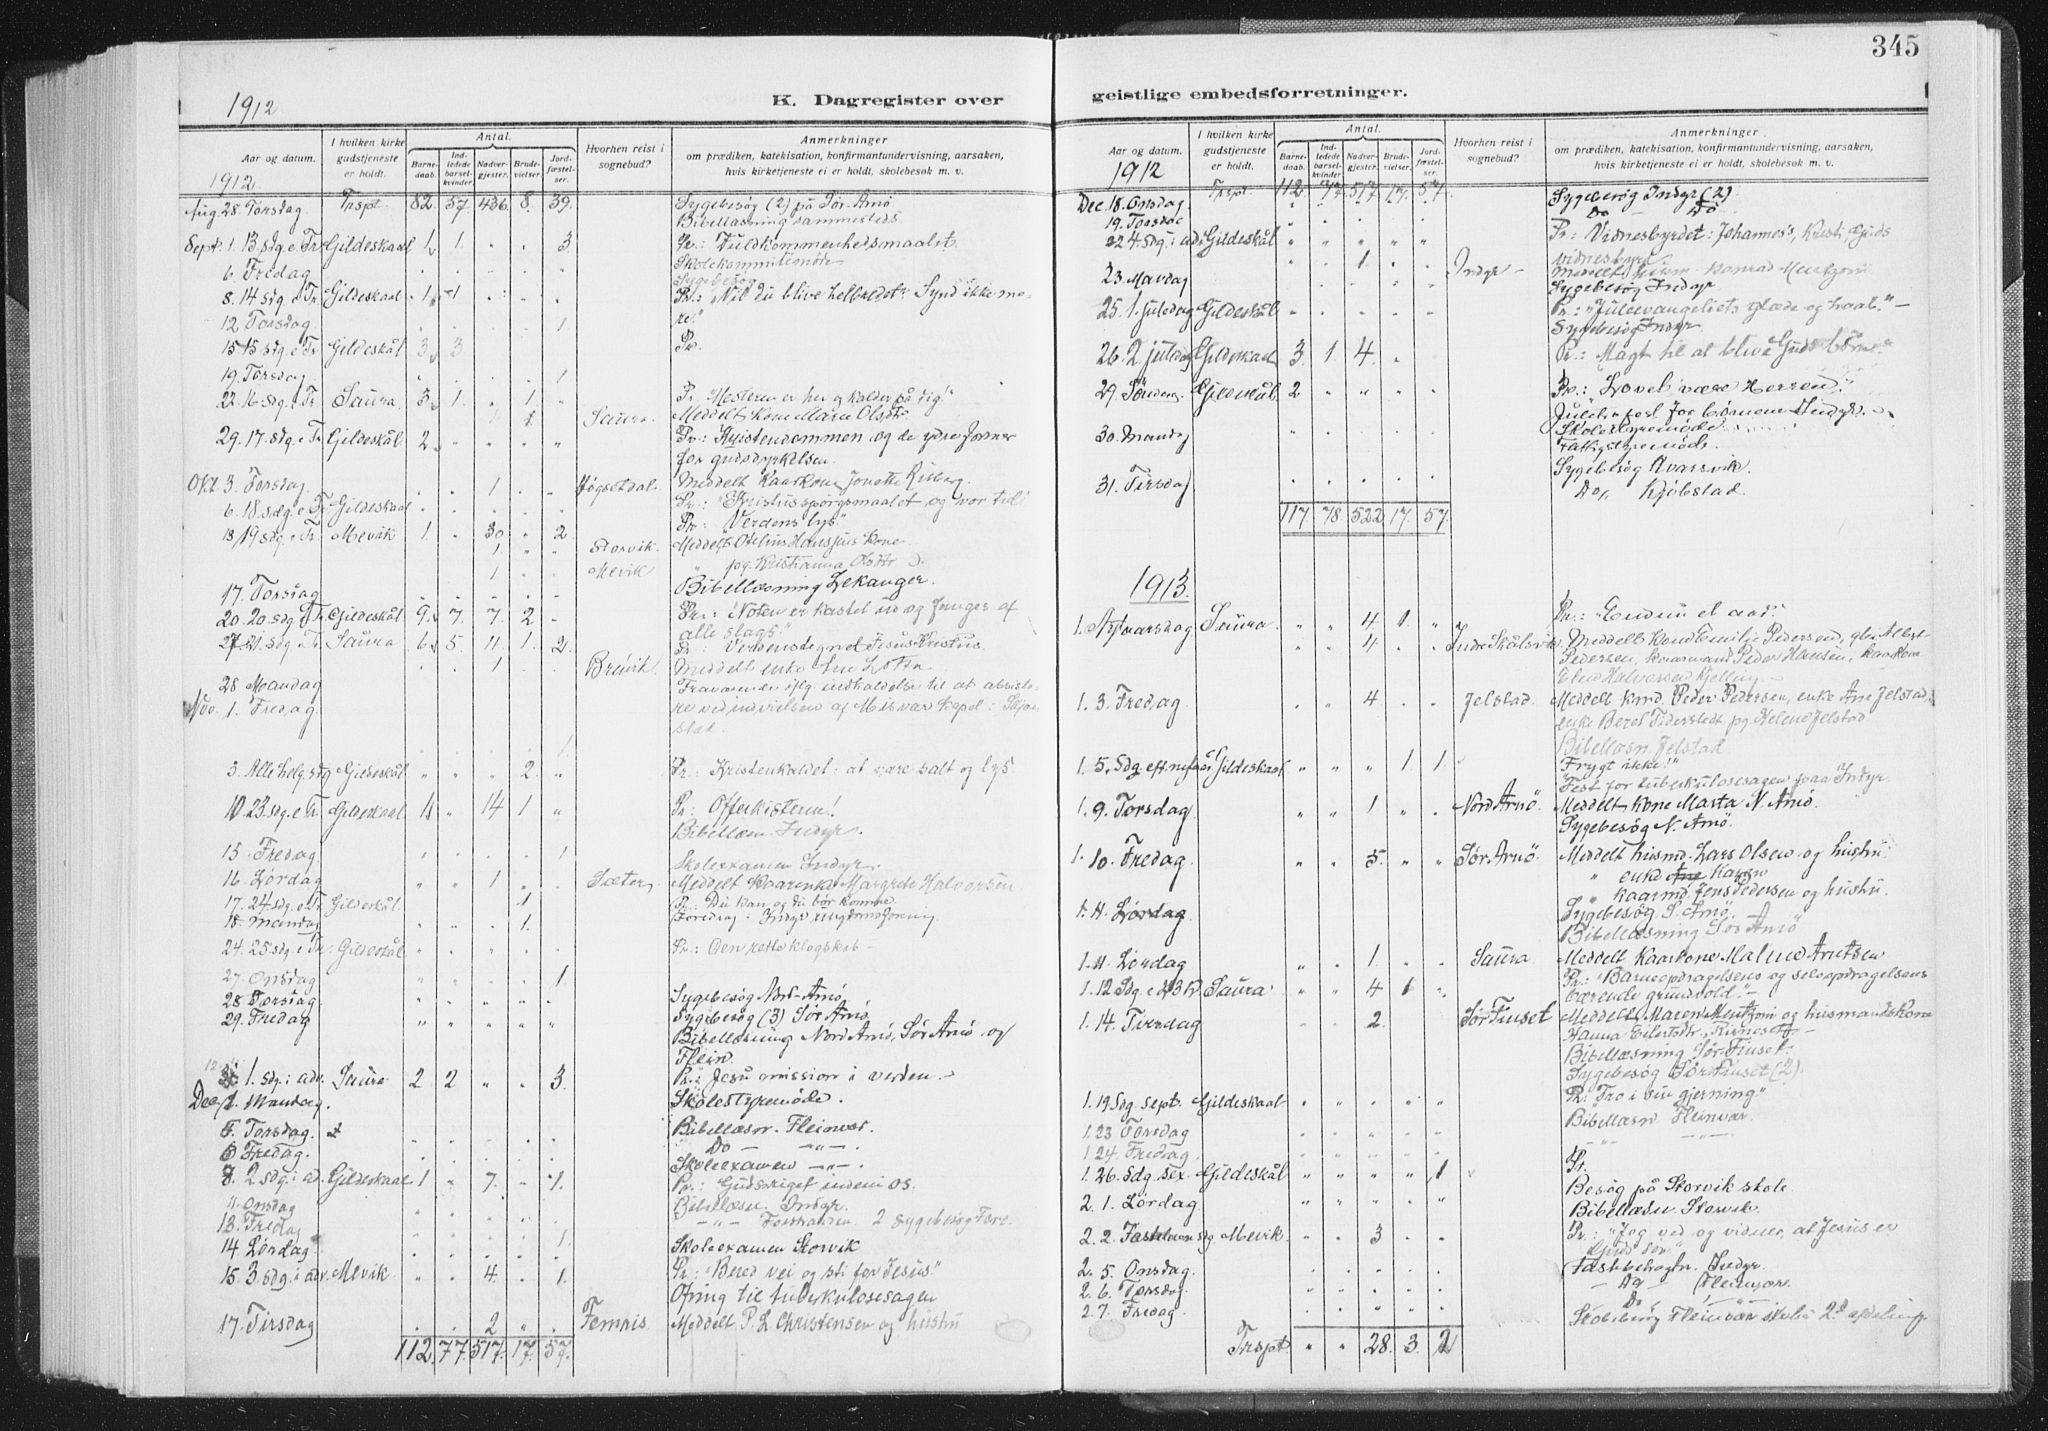 345
1912
K. Dagregister over
geistlige embedsforretninger.
Aar og datum.
I hvilken kirke gudstjeneste er holdt.
Antal.
Barnedaab.
Indledede barselkvinder.
Nadvergjester.
Brudevielser.
Jordfæstelser.
Hvorhen reist i sognebud?
Anmerkninger
om prædiken, katekisation, konfirmantundervisning, aarsaken,
hvis kirketjeneste ei er holdt, skolebesøk m. v.
1912.
Aug. 28. Torsdag Trspt. 82. 57. 436. 8. 39. Sygebesøg (2) på Sør-Arnø
Bibellæsning sammesteds
Sept. 1. 13. sdg. e. Tr. Gildeskaal 1 1. " " 3. Pr.: Fuldkommenhedsmaalet.
Skolekommitemøde
6. Fredag Sygebesøg
8. 14 sdg. e. Tr. Gildeskaal 1 1 Pr.: "Vil du blive helbredet? Synd ikke me-
12. Torsdag 1 re!"
15. 15 sdg. e. Tr. Gildeskål 3 3 Pr.
19. Torsdag 1
22. 16. sdg. e. Tr. Saura. 3 1. " 1. " Pr. "Mesteren er her og kalder på dig!"
1. Saura. Meddelt Kone Maren Olsdtr
29. 17. sdg. e. Tr. Gildeskål 2 " " " " Pr.: Kristendommen og de ydre former
for gudsdyrkelsen.
Okt. 3. Torsdag 1 Høgsetdal. Meddelt Kaarkone Jonette
6. 18. sdg. e. Tr. Gildeskaal Pr.: "Kristusspørgsmaalet og vor tid"
13. 19 sdg. e. Tr. Mevik 1. " 30. " 2. Pr.: "Verdens lys"
1 " " Storvik. Meddelt Hans kone
1 Mevik " pg. Kristianna Olsdtr
17. Torsdag Bibellæsning Lekanger.
20. 20. sdg. e. Tr. Gildeskål 9. 7. 7. 2 Pr.: Noten er kastet ud og fanger af
alle slags."
27. 21. sdg. e. Tr. Saura 6 5. 11. 1. 2. Pr: Verdenstegnet Jesus Kristus.
1 Breivik Meddelt enke Ane
28 Mandag Fraværende iflg indkaldelse til at assiste-
Nov. 1. Fredag re ved indvielsen af Misvær Kapel i Skjer-
stad.
1.
3. Alle helg. sdg. Gildeskål " " " 2. " Pr.: Kristenkaldet: at være salt og lys.
10. 23. sdg. e. Tr. Gildeskaal 1 " 14 1 " Pr.: Offerkisterne!
Bibellæsn. Indyr.
15. Fredag 1 Skoleexamen Indyr.
16. Lørdag " " 1 Sæter Meddelt Kaarenke Margrete Halvorsen.
17. 24 sdg. e. Tr. Gildeskål. 1 Pr.: Du kan og du bør komme
18. Mandag 1. Foredrag: Indyr ungdomsforening
24. 25 sdg. e. Tr. Gildeskål Pr.: Den rette klogskab
27. Onsdag 1.
28 Torsdag Sygebesøg Nord-Arnø
29. Fredag Sygebesøg (3) Sør Arnø
Bibellæsning Nord Arnø, Sør Arnø og
Flein.
1. sdg. i adv. Saura 2 2 " " 3. Pr.: Jesu mission i verden.
Dec. 2. Mandag. Skolestyremøde.
5. Torsdag. Bibellæsn. Fleinvær.
6 Fredag. Do — — " —
Skoleexamen — " — .
8. 2 sdg. i adv. Gildeskaal 1 " 7. " 1. Pr.: Gudsriget inden i os.
11. Onsdag Bibellæsn. Indyr.
13. Fredag — " — 2 sygebesøgFøre.
14 Lørdag Skoleexamen Storvik
15. 3. sdg. i adv. Mevik. " " 4. " 1. Pr.: "Bered vei og sti for Jesus."
Ofring til tuberkulosesagen
17. Tirsdag 2 Femris. Meddelt P. L. Christensen og hustru
112. 77. 517. 17. 57.
Aar og datum.
I hvilken kirke gudstjeneste er holdt.
Antal.
Barnedaab.
Indledede barselkvinder.
Nadvergjester.
Brudevielser.
Jordfæstelser.
Hvorhen reist i sognebud?
Anmerkninger
om prædiken, katekisation, konfirmantundervisning, aarsaken,
hvis kirketjeneste ei er holdt, skolebesøk m. v.
1912
Trspt. 112. 77. 517. 17. 57.
Dec. 18. Onsdag Sygebesøg Indyr (2)
19. Torsdag Do — Do
22 4. sdg. i adv. Gildeskål Pr: Vidnesbyrdet: Johannes's, Kristi, Guds
vidnesbyrd
23. Mandag 1. Indyr — Meddelt Konrad Mentzoni
Sygebesøg Indyr
25. 1. juledag Gildeskål Pr.: "Juleevangeliets glæde og haab." —
Sygebesøg Indyr
26. 2 juledag Gildeskaal 3. 1. 4. Pr.: Magt til at blive Guds børn.
29. Søndag Gildeskål 2 Pr.: "Lovet være Herren."
Juletræfest for børnene Indyr.
30. Mandag Skolestyremøde
Fattigstyremøde.
Sygebesøg Kvarsvik.
31. Tirsdag Do " Kjøbstad.
117. 78. 522 17. 57.
1913.
1. Nytaarsdag Saura. " " 4 1. " Pr.: "Endnu et aar!"
4. Indre Skålsvik Meddelt Kand Emilie Pedersen, gbr. Albert
Pedersen, kaarmand Peder Hansen, kaarkone
Halvorsen Kjelling
1. 3. Fredag 4 Jelstad. Meddelt kmd. Peder Pedersen, enke Ane Jelstad,
enke Beret pg. Helene Jelstad
Bibellæsn. Jelstad
1. 5. Sdg. eft. nytaar Gildeskaal " " " 1. 1. "Frygt ikke!"
Fest for tuberkulosesagen paa Indyr.
1. 9. Torsdag " " 1 Nord Arnø. Meddelt kone Marta N. Arnø.
Sygebesøg N. Arnø.
1. 10. Fredag " " 5. " " Sør Arnø. Meddelt husmd. Lars Olsen og hustru
" enke Karen
" kaarmd. Jens Pedersen og hustru.
1. 11. Lørdag Sygebesøg S. Arnø.
Bibellæsning Sør Arnø
1. 11. Lørdag 1 Saura Meddelt Kaarkone Arntsen
1. 12 Sdg. e H3K. Saura " " 4 1 " Pr.: "Barneopdragelsens og selvopdragelsens
bærende grundvold." —
1. 14. Tirsdag 2. Sør Finset Meddelt Maren Mentzoni og husmandskone
Hanna Eilertsdtr. Finneset
Bibellæsning Sør Finset.
Sygebesøg Sør Finset (2).
1. 19 Sdg. sept. Gildeskaal Pr: "Tro i sin gjerning"
1. 23 Torsdag Bibellæsn. Fleinvær
1 24. Fredag — " — — " —
1. 26. Sdg. sex. Gildeskål " " " " 1 Pr.
2. 1. Lørdag Besøg på Storvik skole.
Bibellæsn. Storvik.
2. 2. Fastelavns sdg. Mevik. 3 Pr.: "Jeg ved og vidner, at Jesus er
Guds søn"
2. 5. Onsdag. Indyr.
2. 6. Torsdag — Do — Fleinvær.
2. 7. Fredag Do — " —
Skolebesøg Fleinvær skole 2d afdeling
Trspt. " " 28. 3. 2